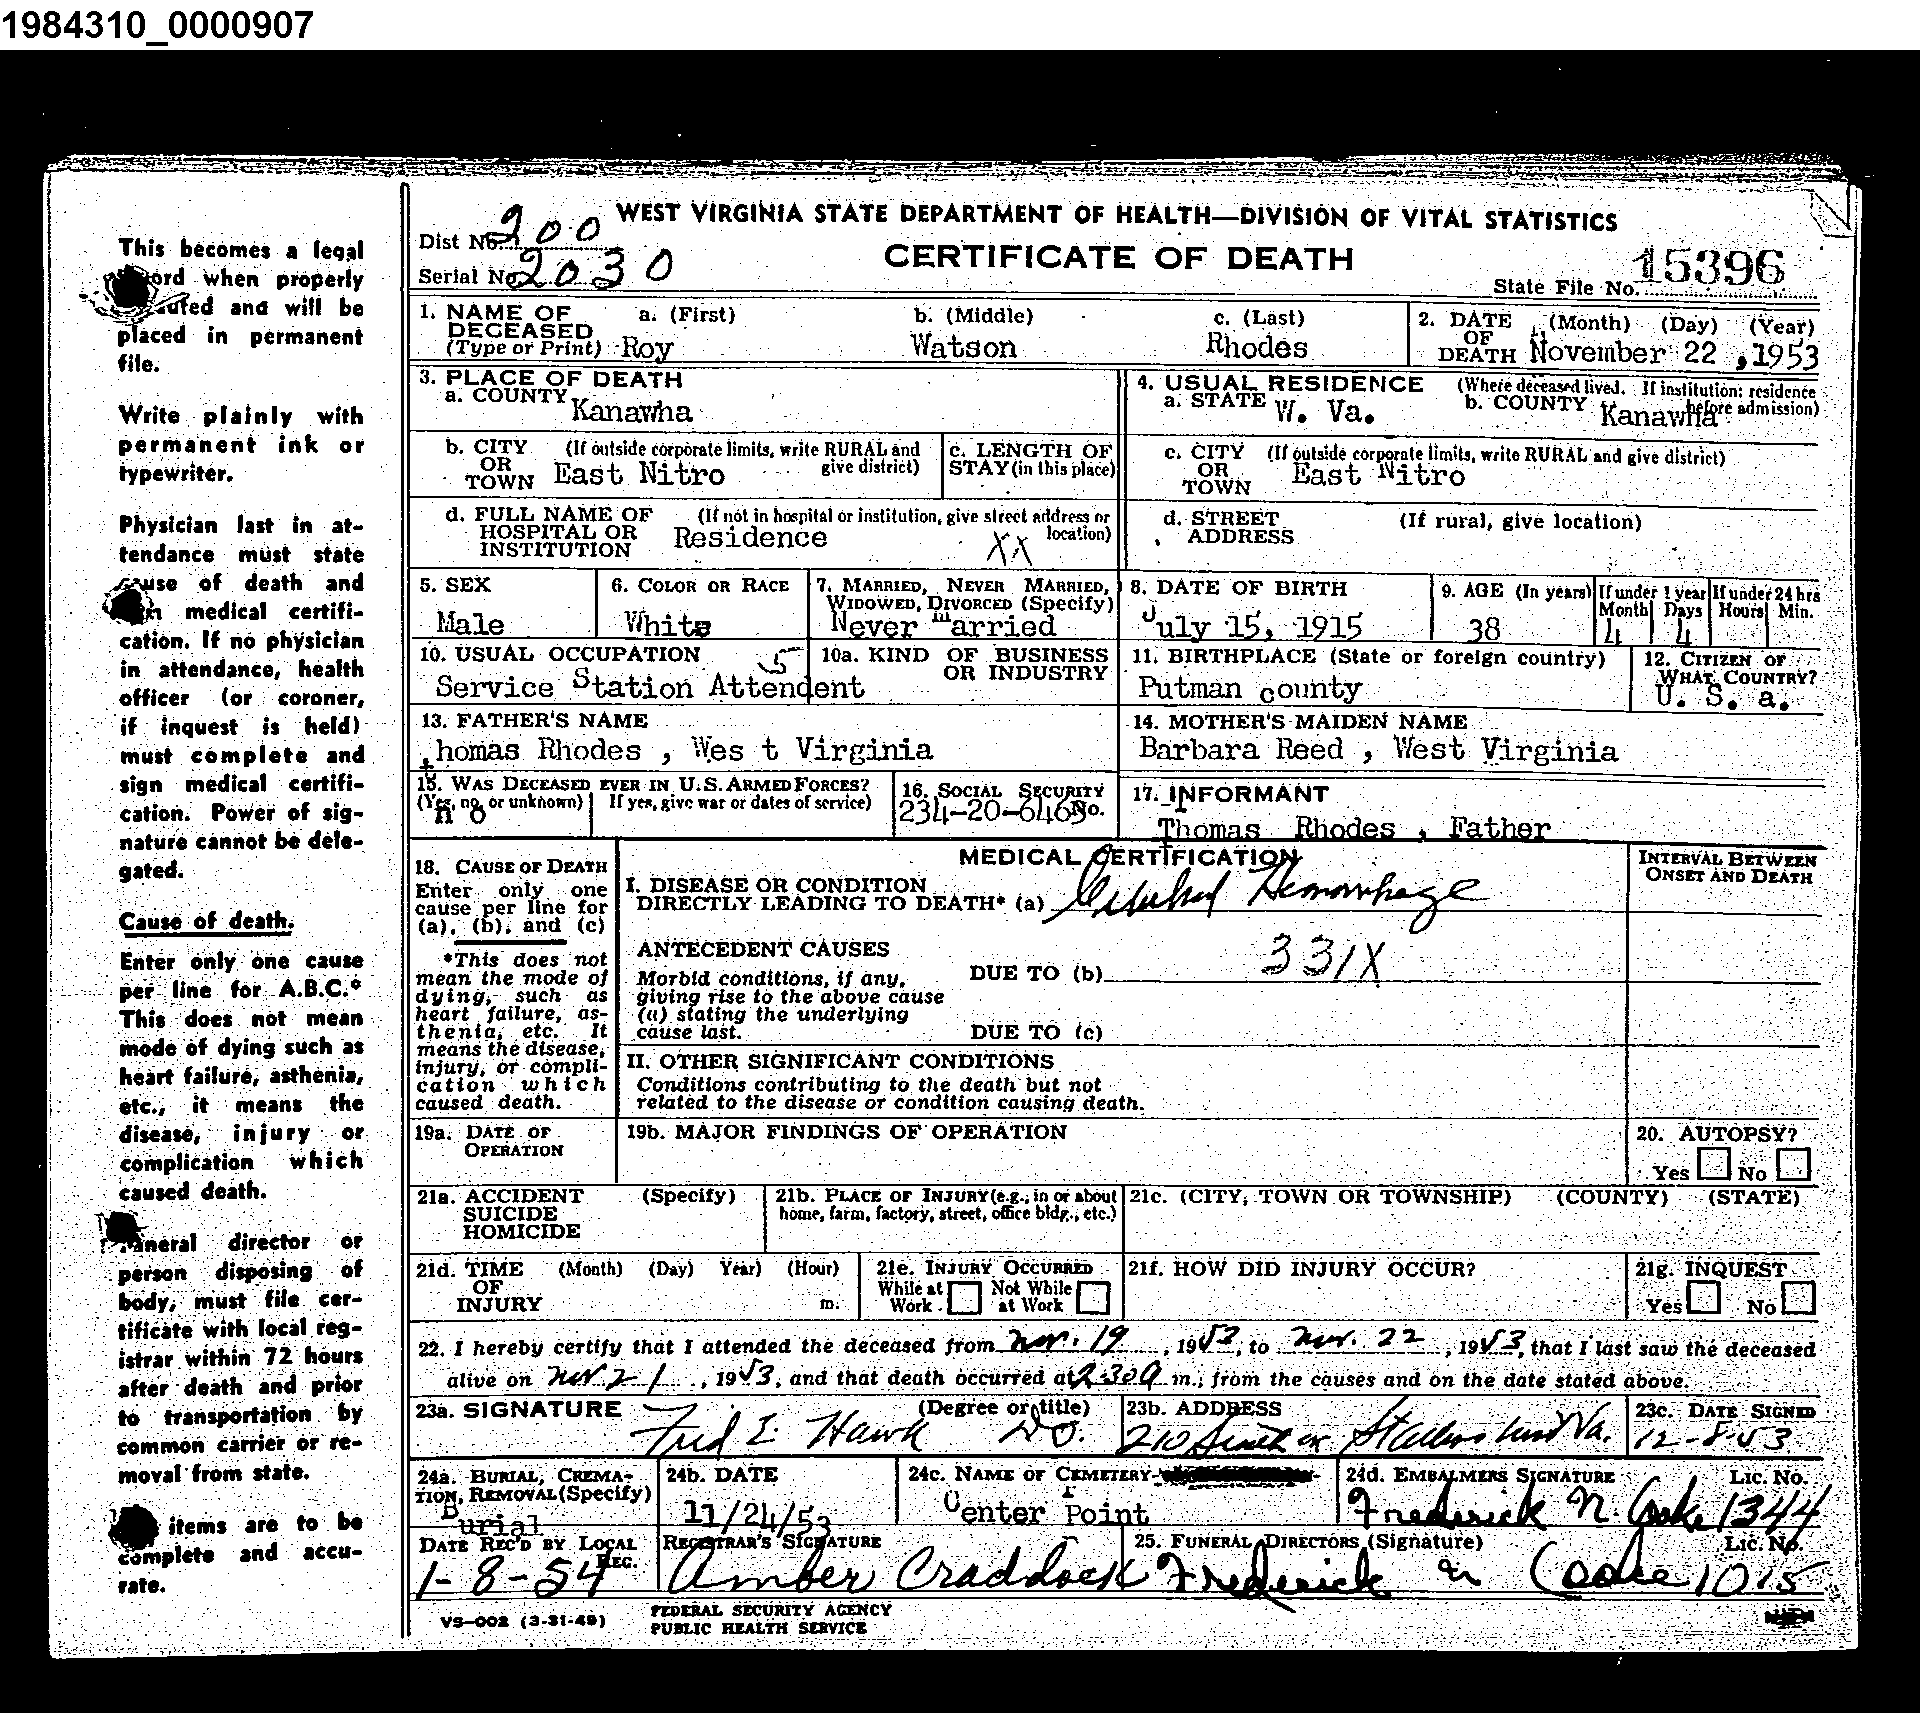 1984310_0000907
This becomes a legal
ord when properly
uted and will be
placed in permanent
file.
Write plainly with
permanent ink or
typewriter.
Physician last in at-
tendance must state
cause of death and
medical certifi-
cation. If no physician
in attendance, health
officer (or coroner,
if inquest is held)
must complete and
sign medical certifi-
cation. Power of sig-
nature cannot be dele-
gated.
Cause of death.
Enter only one cause
per line for A.B.C.*
This does not mean
mode of dying such as
heart failure, asthenia,
etc., it means the
disease, injury or
complication which
caused death.
Funeral director or
person disposing of
body, must file cer-
tificate with local reg-
istrar within 72 hours
after death and prior
to transportation by
common carrier or re-
moval from state.
items are to be
complete and accu-
rate.
WEST VIRGINIA STATE DEPARTMENT OF HEALTH—DIVISION OF VITAL STATISTICS
Dist No. 200
CERTIFICATE OF DEATH
Serial No. 2030
State File No. 15396
1. NAME OF DECEASED (Type or Print) a. (First) b. (Middle) c. (Last)
Roy Watson Rhodes
2. DATE OF DEATH (Month) (Day) (Year)
November 22 ,1953
3. PLACE OF DEATH
a. COUNTY Kanawha
4. USUAL RESIDENCE (Where deceased lived. If institution: residence before admission)
a. STATE W. Va. b. COUNTY Kanawha
b. CITY OR TOWN (If outside corporate limits, write RURAL and give district) East Nitro
c. LENGTH OF STAY (in this place)
c. CITY OR TOWN (If outside corporate limits, write RURAL and give district) East Nitro
d. FULL NAME OF HOSPITAL OR INSTITUTION (If not in hospital or institution, give street address or location) Residence XX
d. STREET ADDRESS (If rural, give location)
5. SEX Male
6. COLOR OR RACE White
7. MARRIED, NEVER MARRIED, WIDOWED, DIVORCED (Specify) Never married
8. DATE OF BIRTH July 15, 1915
9. AGE (In years) 38
If under 1 year Month 4 Days 4
If under 24 hrs Hours Min.
10. USUAL OCCUPATION 5
Service Station Attendent
10a. KIND OF BUSINESS OR INDUSTRY
11. BIRTHPLACE (State or foreign country) Putman county
12. CITIZEN OF WHAT COUNTRY? U. S. a.
13. FATHER'S NAME
thomas Rhodes , Wes t Virginia
14. MOTHER'S MAIDEN NAME
Barbara Reed , West Virginia
15. WAS DECEASED EVER IN U.S. ARMED FORCES?
(Yes, no, or unknown) If yes, give war or dates of service)
n o
16. SOCIAL SECURITY No.
234-20-6463
17. INFORMANT
Thomas Rhodes , Father
MEDICAL CERTIFICATION
INTERVAL BETWEEN ONSET AND DEATH
18. CAUSE OF DEATH
Enter only one
cause per line for
(a), (b), and (c)
*This does not
mean the mode of
dying, such as
heart failure, as-
thenia, etc. It
means the disease,
injury, or compli-
cation which
caused death.
I. DISEASE OR CONDITION
DIRECTLY LEADING TO DEATH* (a) Cerebral Hemorrhage
ANTECEDENT CAUSES
Morbid conditions, if any,
giving rise to the above cause
(a) stating the underlying
cause last.
DUE TO (b) 331X
DUE TO (c)
II. OTHER SIGNIFICANT CONDITIONS
Conditions contributing to the death but not
related to the disease or condition causing death.
19a. DATE OF OPERATION
19b. MAJOR FINDINGS OF OPERATION
20. AUTOPSY?
Yes No
21a. ACCIDENT SUICIDE HOMICIDE (Specify)
21b. PLACE OF INJURY (e.g., in or about home, farm, factory, street, office bldg., etc.)
21c. (CITY, TOWN OR TOWNSHIP) (COUNTY) (STATE)
21d. TIME OF INJURY (Month) (Day) Year) (Hour) m.
21e. INJURY OCCURRED
While at Work Not While at Work
21f. HOW DID INJURY OCCUR?
21g. INQUEST
Yes No
22. I hereby certify that I attended the deceased from Nov. 19, 1953, to Nov. 22, 1953, that I last saw the deceased
alive on Nov 21, 1953, and that death occurred at 2:30a m., from the causes and on the date stated above.
23a. SIGNATURE (Degree or title)
Fred E. Hawk DO.
23b. ADDRESS
210 Va.
23c. DATE SIGNED
12-8-53
24a. BURIAL, CREMATION, REMOVAL (Specify)
Burial
24b. DATE
11/24/53
24c. NAME OF CEMETERY
Center Point
24d. EMBALMERS SIGNATURE Lic. No.
Frederick N. Cooke 1344
DATE REC'D BY LOCAL REG.
1-8-54
REGISTRAR'S SIGNATURE
Amber Craddock
25. FUNERAL DIRECTORS (Signature) Lic. No.
Frederick N Cooke 1015
VS-002 (3-31-49)
FEDERAL SECURITY AGENCY
PUBLIC HEALTH SERVICE